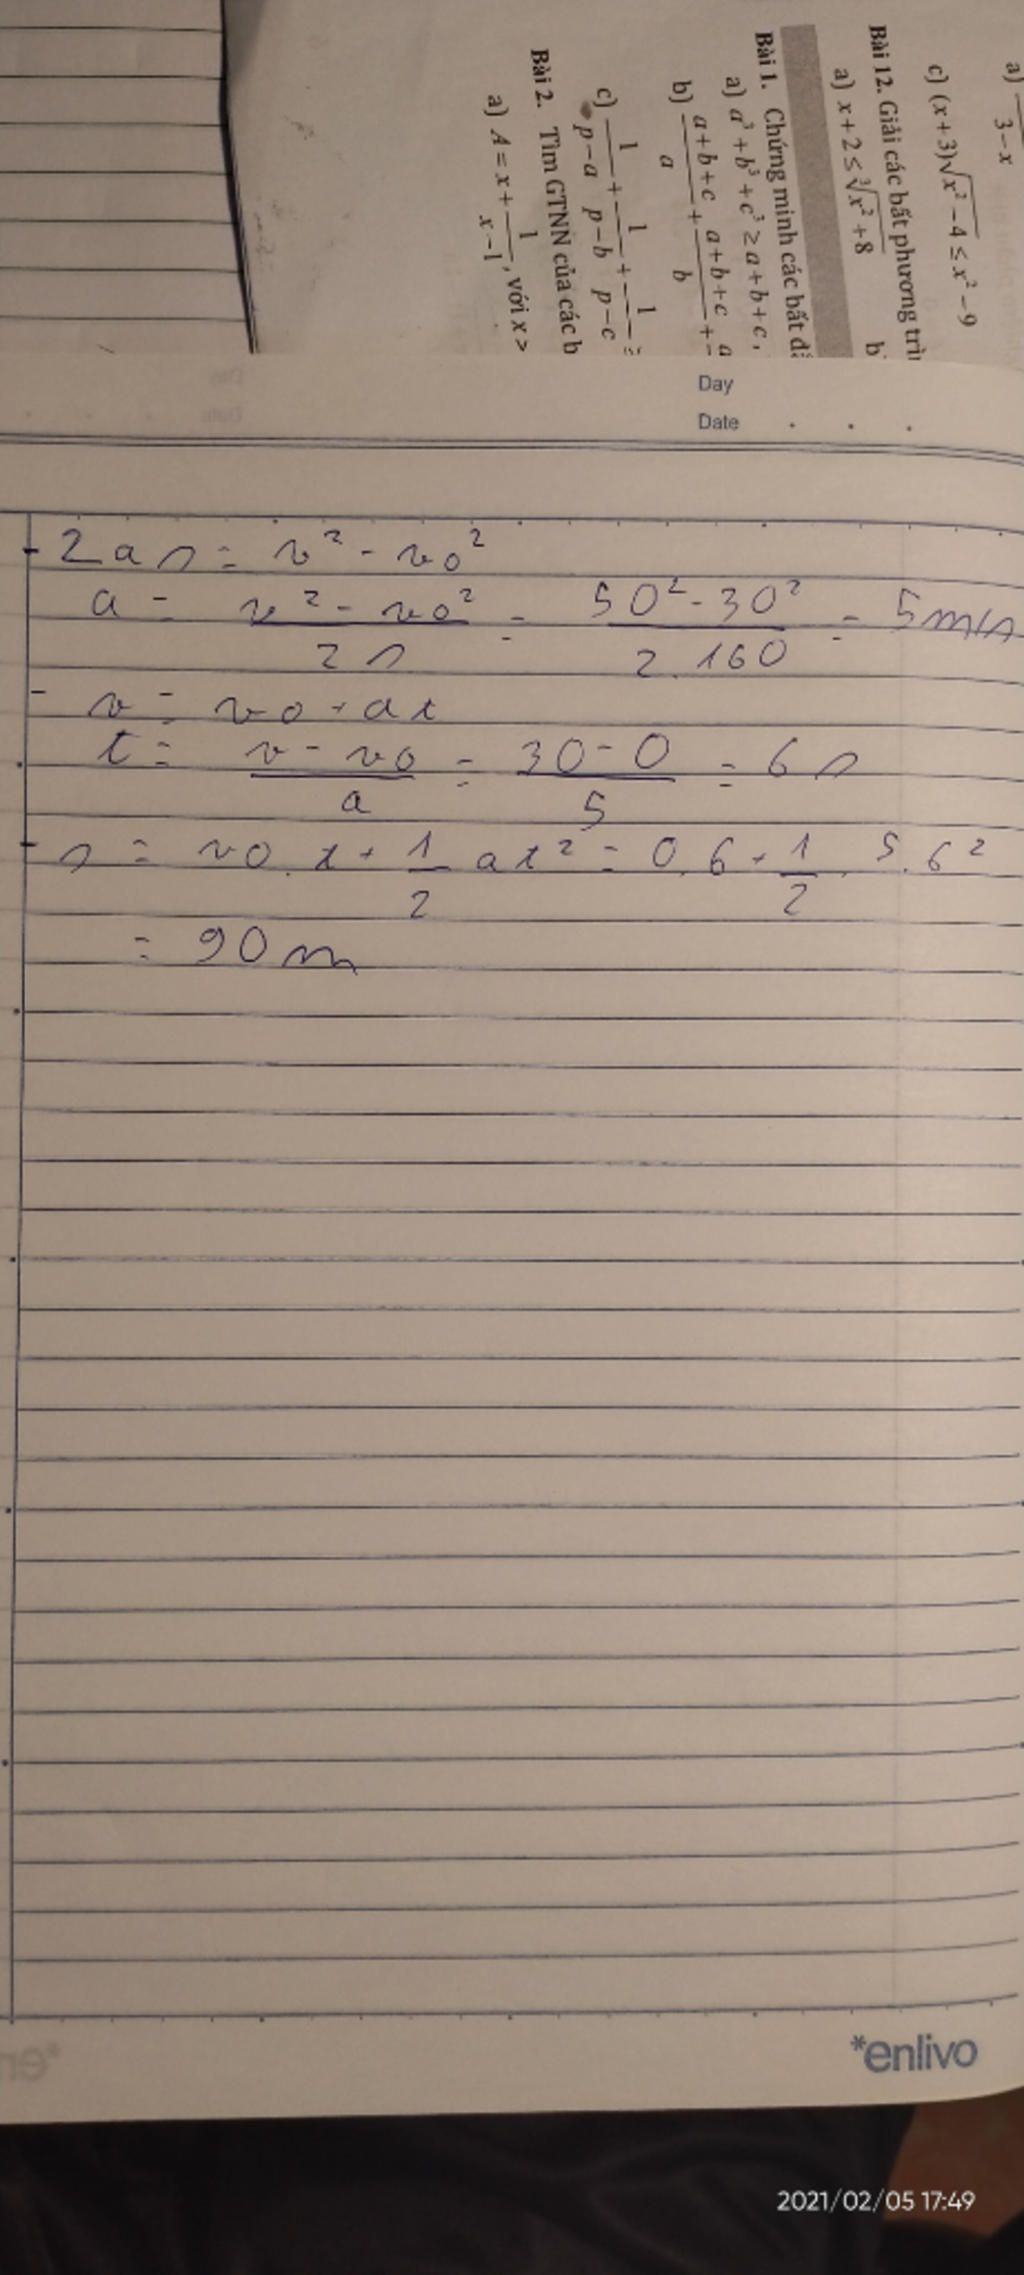 a) 3-x
c) (x+3)√x²-4 ≤ x²-9
Bài 12. Giải các bất phương trìn
a) x+2 ≤ ∛x²+8 b
Bài 1. Chứng minh các bất đẳ
a) a³+b³+c³ ≥ a+b+c,
b) (a+b+c)/a + (a+b+c)/b +
c) 1/(p-a) + 1/(p-b) + 1/(p-c) ≥
Bài 2. Tìm GTNN của các b
a) A = x + 1/(x-1), với x >
Day
Date
- 2as = v² - vo²
a = (v² - vo²)/(2s) = (50² - 30²)/(2.160) = 5m/s
- v = vo + at
t = (v - vo)/a = (30 - 0)/5 = 6s
- s = vo.t + 1/2 at² = 0.6 + 1/2 . 5.6²
= 90m
*enlivo
2021/02/05 17:49